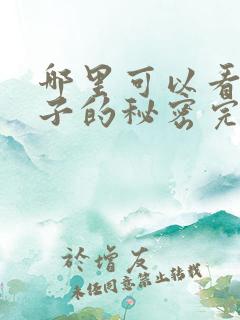 哪里可以看
子的秘密完
於增友
未经同意禁止转载